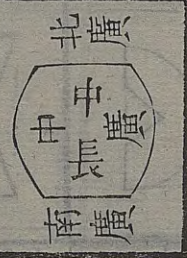 北廣
中廣
中長
南廣